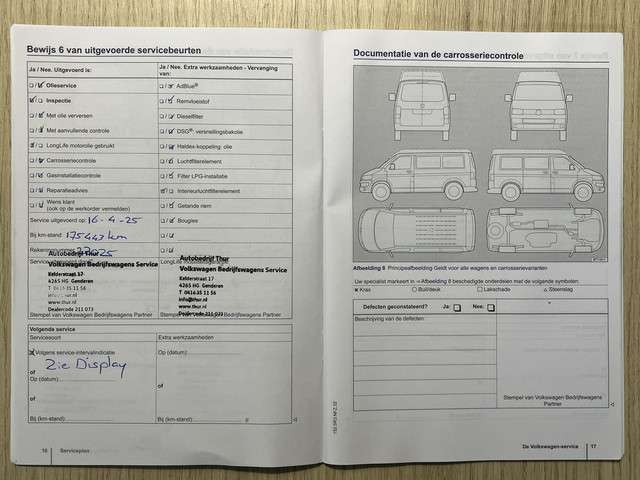 Bewijs 6 van uitgevoerde servicebeurten
Ja / Nee. Uitgevoerd is:
Ja / Nee. Extra werkzaamheden - Vervanging van:
Olieservice
AdBlue®
Inspectie
Remvloeistof
Met olie verversen
Dieselfilter
Met aanvullende controle
DSG® versnellingsbakolie
LongLife motorolie gebruikt
Haldex-koppeling olie
Carrosseriecontrole
Luchtfilterelement
Gasinstallatiecontrole
Filter LPG-installatie
Reparatieadvies
Interieurluchtfilterelement
Wens klant
(ook op de werkorder vermelden)
Getande riem
Service uitgevoerd op: 16-4-25
Bougies
Bij km-stand: 175443 km
Of:
Autobedrijf Thur
Volkswagen Bedrijfswagens Service
Kelderstraat 17
4265 HG Genderen
www.thur.nl
Dealercode 211 073
Autobedrijf Thur
Volkswagen Bedrijfswagens Service
Kelderstraat 17
4265 HG Genderen
T 0416 35 11 56
info@thur.nl
www.thur.nl
Dealercode 211 073
Stempel van Volkswagen Bedrijfswagens Partner
Stempel van Volkswagen Bedrijfswagens Partner
Volgende service
Servicesoort
Extra werkzaamheden
Volgens service-intervalindicatie
Op (datum):
Zie Display
of
Op (datum):
of
of
Bij (km-stand):
Bij (km-stand):
16 Serviceplan
Documentatie van de carrosseriecontrole
Afbeelding 8 Principeafbeelding Geldt voor alle wagens en carrosserievarianten
Uw specialist markeert in → Afbeelding 8 beschadigde onderdelen met de volgende symbolen:
× Kras ○ Buil/deuk □ Lakschade △ Steenslag
Defecten geconstateerd? Ja: Nee:
Beschrijving van de defecten:
Stempel van Volkswagen Bedrijfswagens
Partner
De Volkswagen-service 17